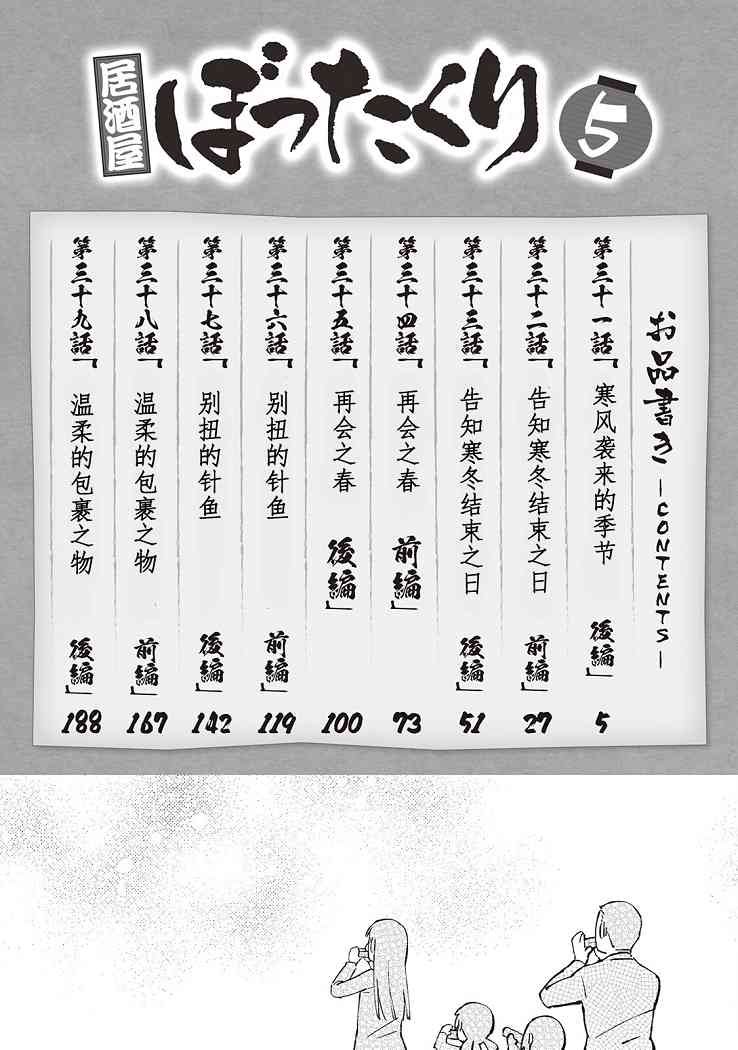 居酒屋
ぼったくり
5
お品書き
—CONTENTS—
第三十一話「寒风袭来的季节 後編」 5
第三十二話「告知寒冬结束之日 前編」 27
第三十三話「告知寒冬结束之日 後編」 51
第三十四話「再会之春 前編」 73
第三十五話「再会之春 後編」 100
第三十六話「别扭的针鱼 前編」 119
第三十七話「别扭的针鱼 後編」 142
第三十八話「温柔的包裹之物 前編」 167
第三十九話「温柔的包裹之物 後編」 188